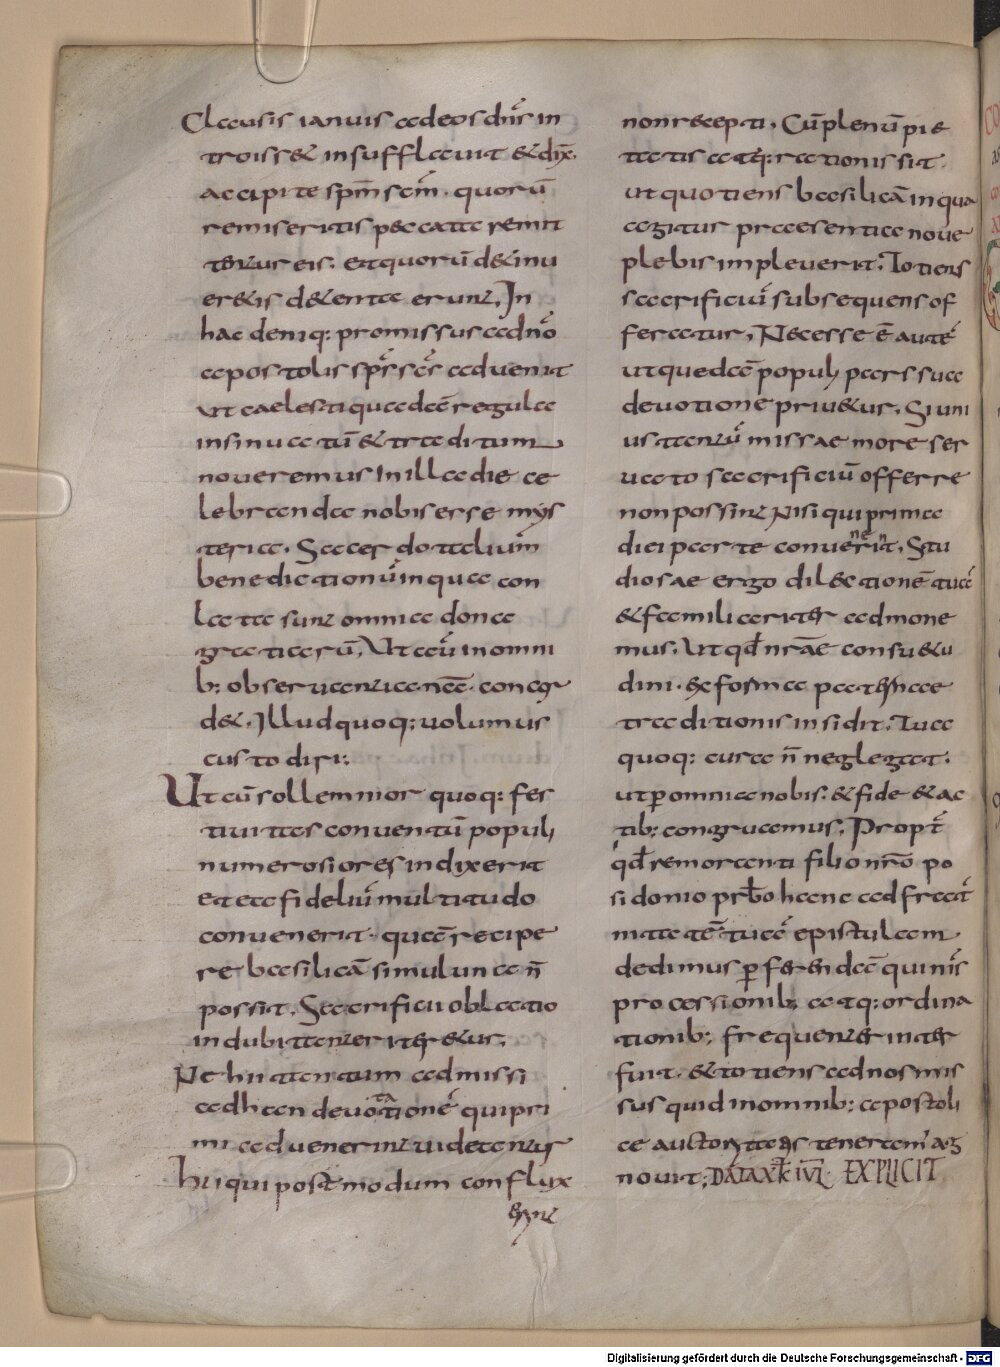 Clausis ianuis ad eos dn̄s in
troiss& insufflauit & dix̄.
accipite sp̄m sc̄m. quorū
remiseritis peccata remit
tentur eis. et quorū d&inu
er&is d&enta erunt, In
hac deniq: promissus a dn̄o
apostolis sp̄s sc̄s aduenit
ut caelesti quadā regula
insinuatū & traditum
noueremus In illa die ce
lebranda nobis esse mys
teria. Sacerdotaliūm
benedictionū in qua con
lata sunt omnia dona
gratiarū, Ut eū in omni
b; obseruantia nēc. concor
d&. Illud quoq: uolumus
custodiri:
Ut cū sollemnior quoq: fes
tiuitas conuentū populi
numerosiores indixerit
et ea fideliū multitudo
conuenerit. quā recipe
re basilicā simul una n̄
possit. Sacrificii oblatio
indubitanter iter&ur,
Ne hii tantum admissi
ad han deuotationē qui pri
mi aduenerint uideantur
hii qui postmodum conflux
erunt
non recepti, Cū plenū pie
tatis atq: rationis sit.
ut quotiens basilicā in qua
agitur praesentia noue
plebis impleuerit. Totiens
sacrificiū subsequens of
feratur, Necesse ē autē
ut quedā populi pars sua
deuotione priu&ur, Si uni
us tantū missae more ser
uato sacrificiū offerre
non possint Nisi qui prima
diei parte conuenerint. Stu
diosae ergo dilectionē tuā
& familiariter admone
mus, Ut qđ nr̄ae consu&u
dini. & forma paternae
traditionis insidit, Tua
quoq: cura n̄ neglegat.
ut ꝑ omnia nobis. & fide & ac
tib; congruamus, Propt̄
qđ remeanti filio nr̄o po
sidonio prb̄o hanc ad frat̄
nitatē tuā epistulam
dedimus ꝑferendā qui nr̄is
processionib; atq: ordina
tionib; frequenter inter
fuit. & totiens ad nos mis
sus quid in omnib; apostoli
ce auctoritatis teneremꝰ ag
nouit; DATA XI K̄ IVL̄. EXPLICIT
Digitalisierung gefördert durch die Deutsche Forschungsgemeinschaft - DFG